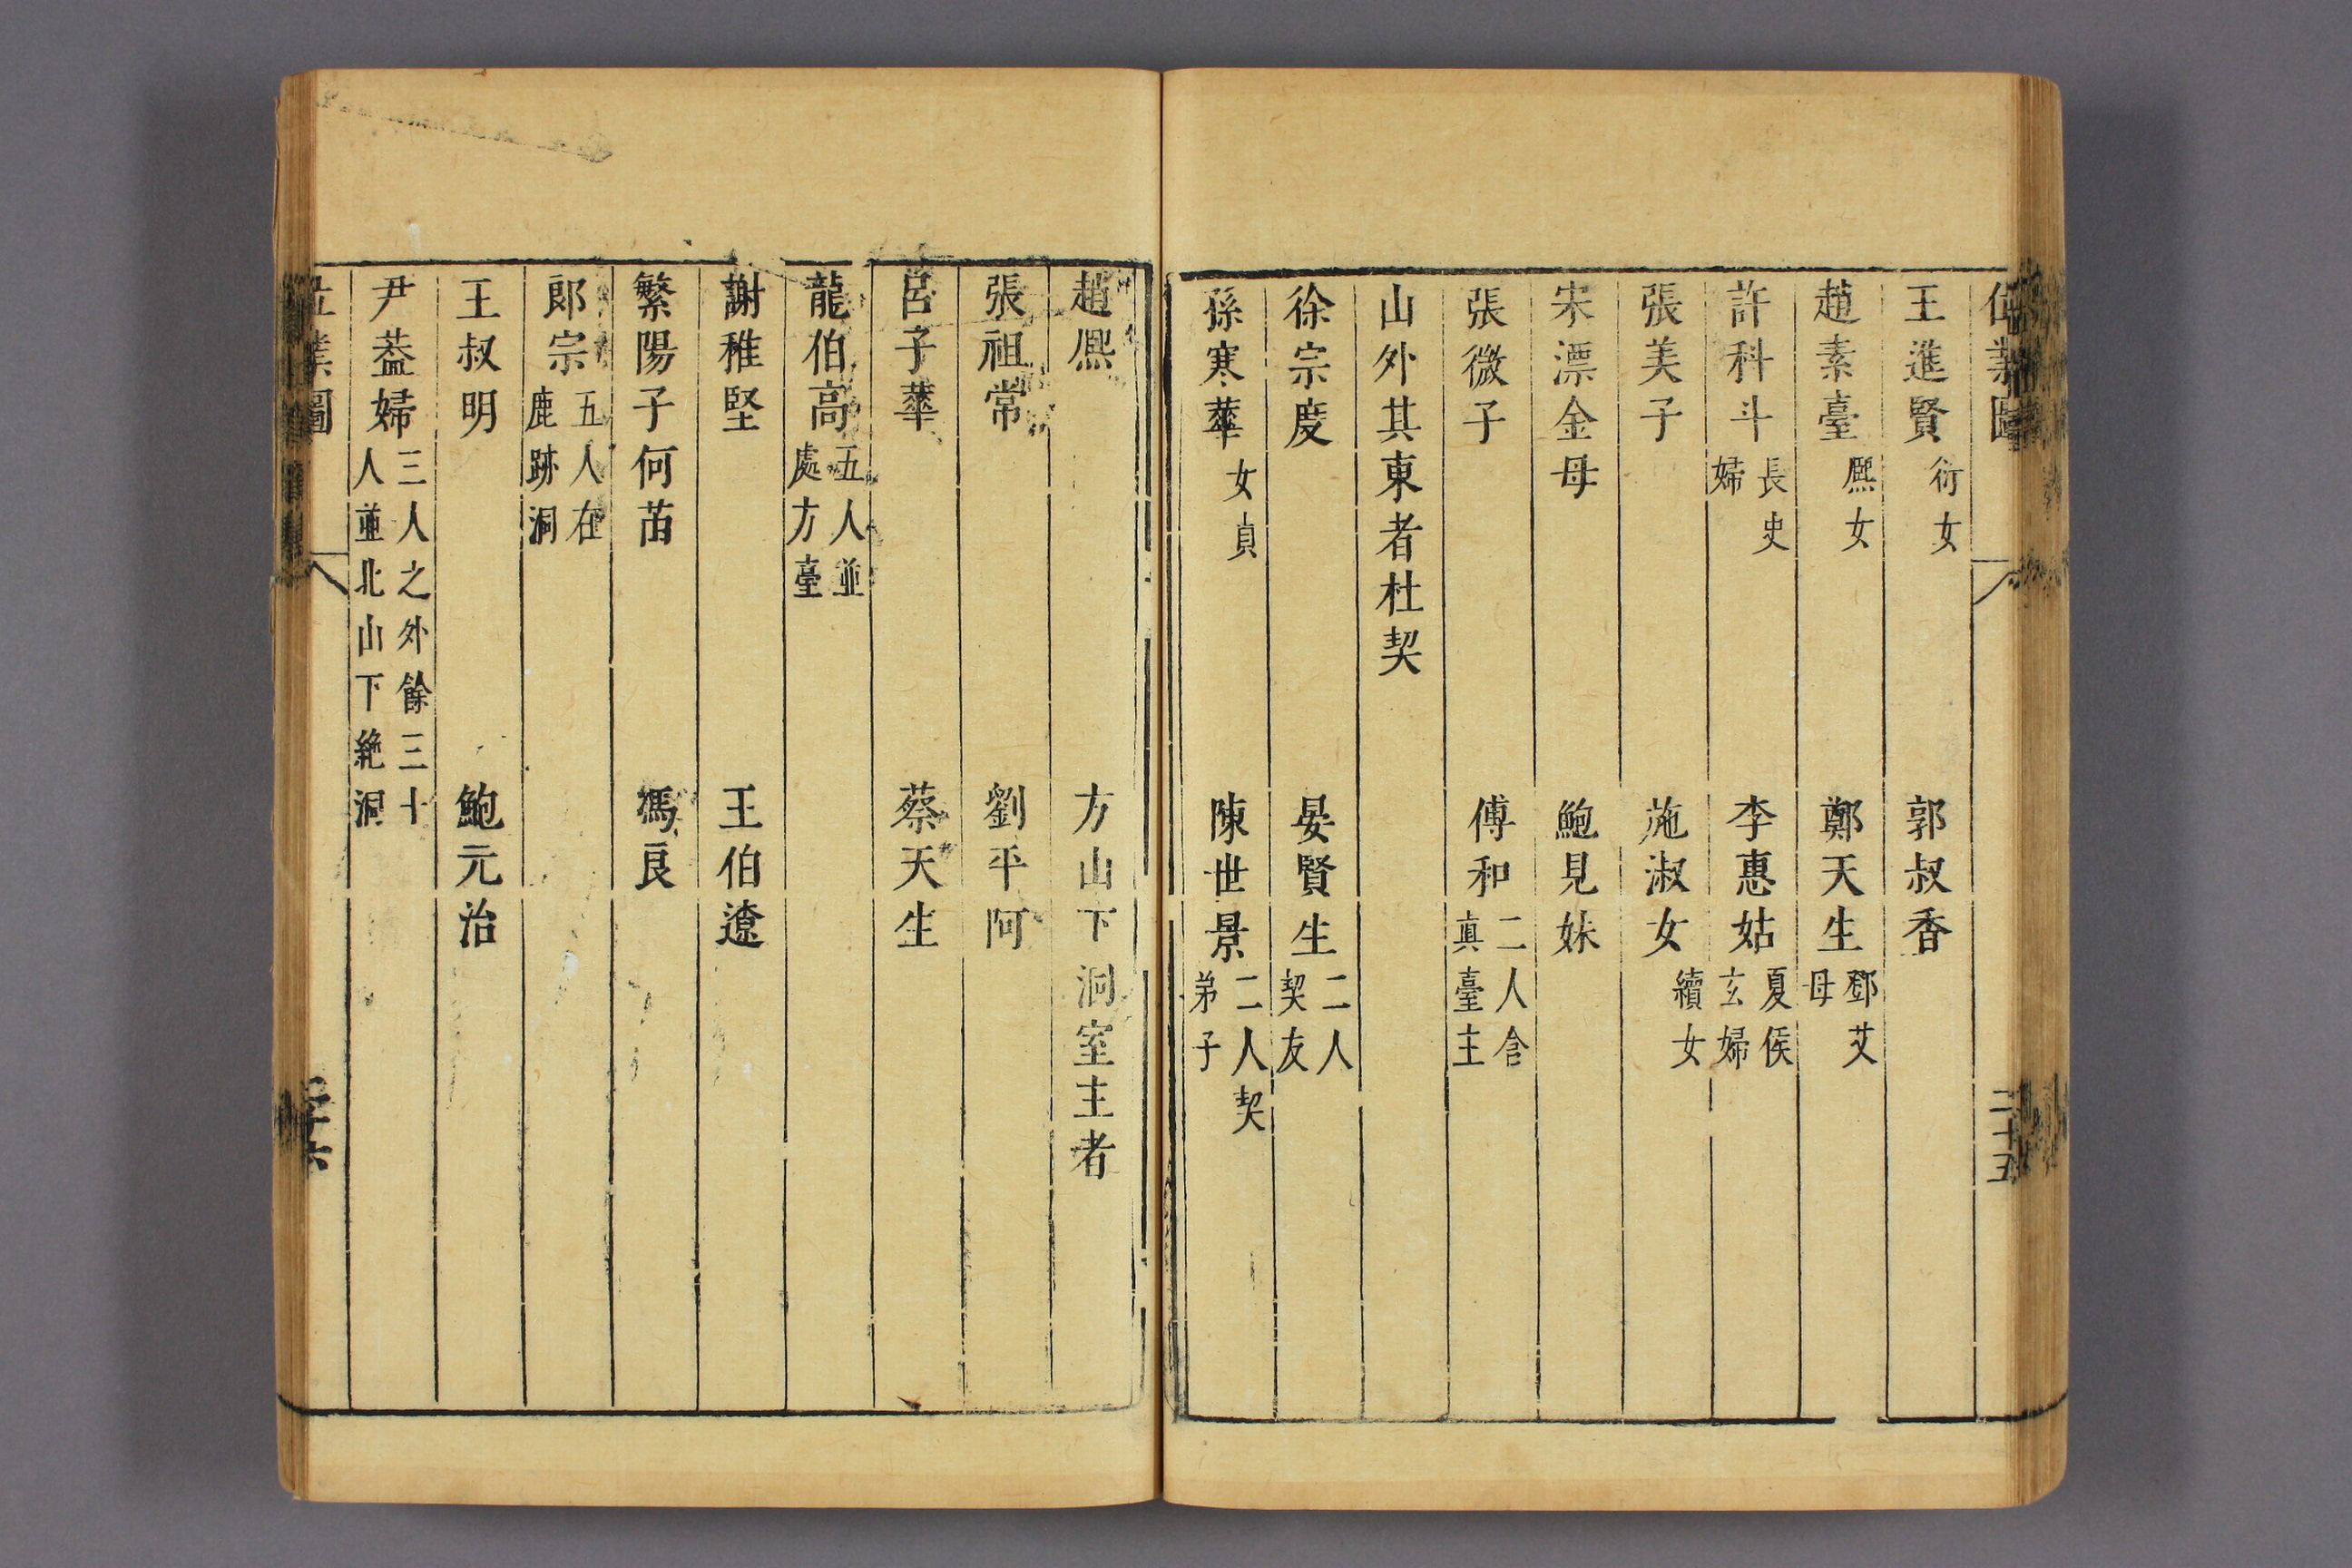 位業圖 二十五
王進賢衍女 郭叔香
趙素臺熈女 鄭天生鄧艾母
許科斗長史婦 李惠姑夏侯玄婦
張美子 施淑女續女
宋漂金母 鮑見妹
張微子 傅和二人含真臺主
山外其東者杜契
徐宗度 晏賢生二人契友
孫寒華女貞 陳世景二人契弟子
趙熈 方山下洞室主者
張祖常 劉平阿
呂子華 蔡天生
龍伯高五人並處方臺
謝稚堅 王伯遼
繁陽子何苗 馮良
郎宗五人在鹿跡洞
王叔明 鮑元治
尹蓋婦三人之外餘三十人並北山下絶洞
位業圖